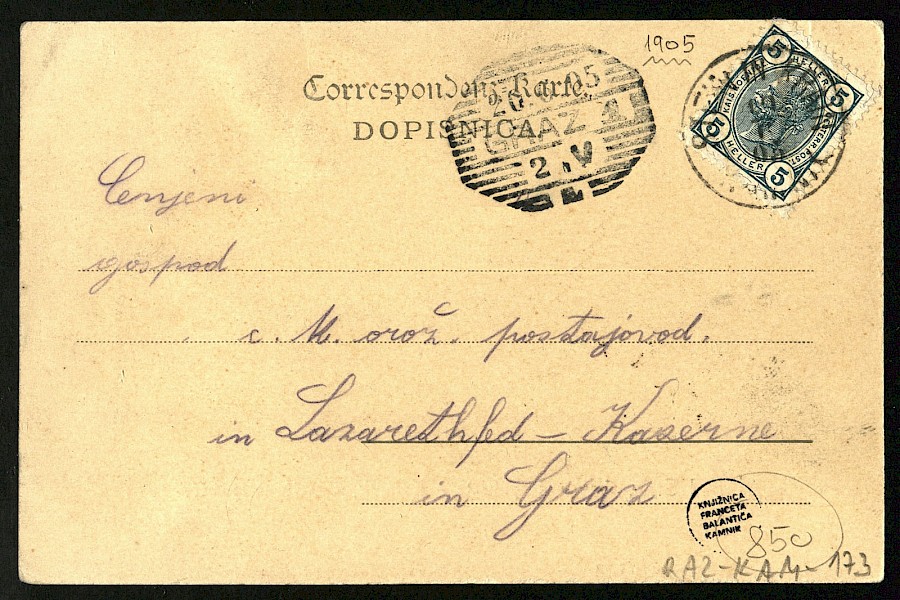 1905
Correspondenz-Karte.
DOPISNICA.
GRAZ 1
2. V
5 5 5 5
HELLER HELLER
Cenjeni
gospod
c. k. orož. postajovod.
in Lazarethfed - Kaserne
in Graz
KNJIŽNICA
FRANCETA
BALANTIČA
KAMNIK
850
RAZ-KAM-173